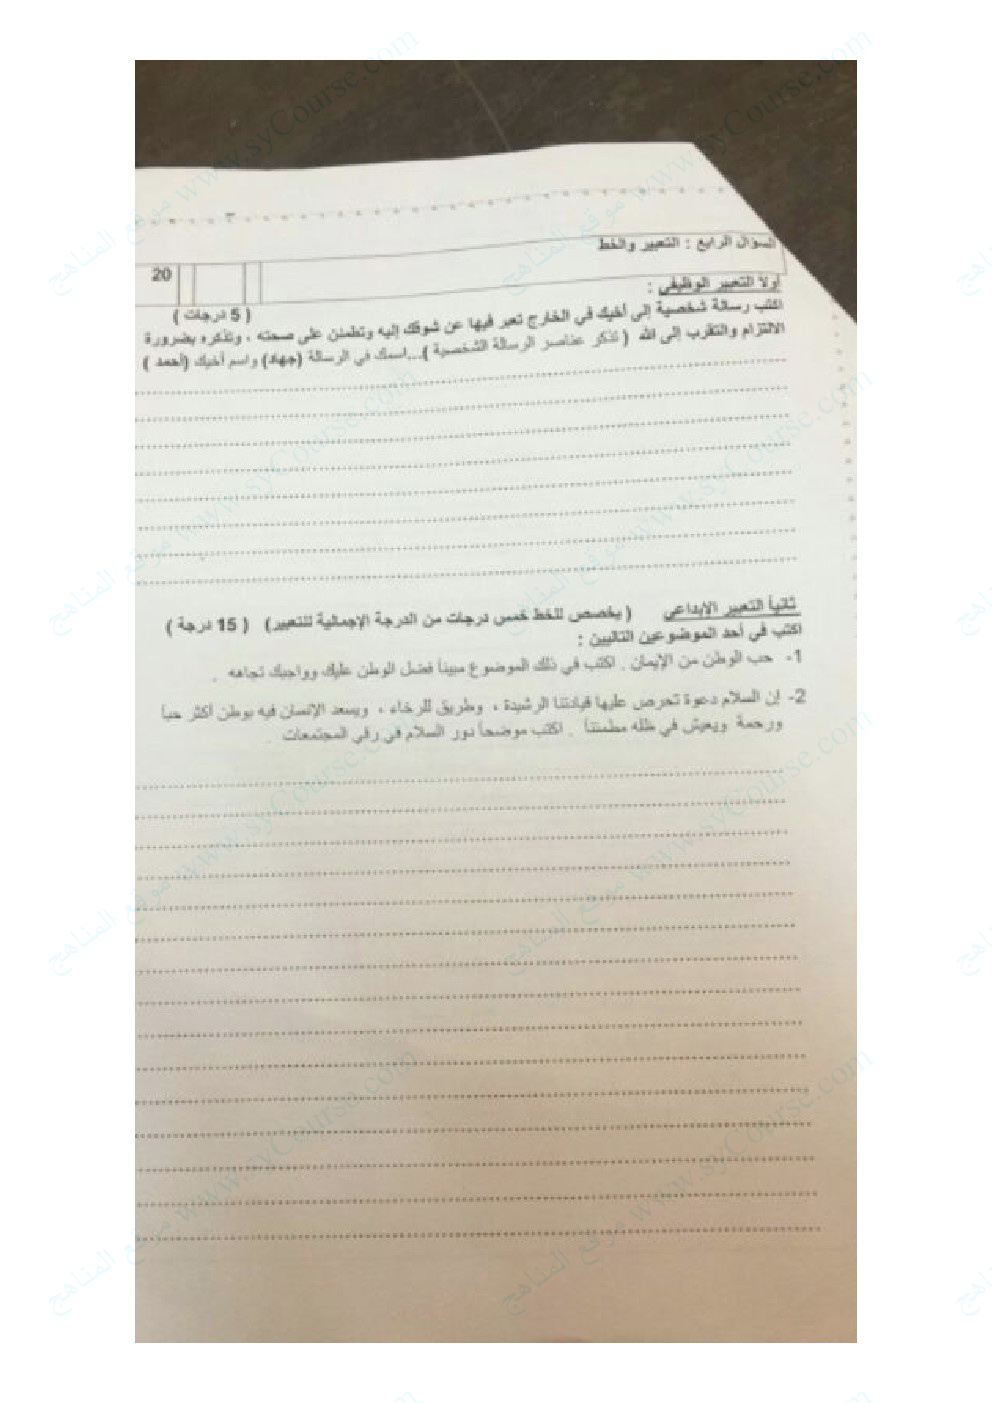 ٣
السؤال الرابع : التعبير والخط
20
أولا التعبير الوظيفي :
( 5 درجات )
اكتب رسالة شخصية إلى أخيك في الخارج تعبر فيها عن شوقك إليه وتطمئن على صحته ، وتذكره بضرورة
الالتزام والتقرب إلى الله ( تذكر عناصر الرسالة الشخصية )...اسمك في الرسالة (جهاد) واسم أخيك (أحمد )
ثانياً التعبير الإبداعي ( يخصص للخط خمس درجات من الدرجة الإجمالية للتعبير) ( 15 درجة )
اكتب في أحد الموضوعين التاليين :
1- حب الوطن من الإيمان . اكتب في ذلك الموضوع مبيناً فضل الوطن عليك وواجبك تجاهه .
2- إن السلام دعوة تحرص عليها قيادتنا الرشيدة ، وطريق للرخاء ، ويسعد الإنسان فيه بوطن أكثر حباً
ورحمة ويعيش في ظله مطمئناً . اكتب موضحاً دور السلام في رقي المجتمعات .
موقع المناهج www.syCourse.com